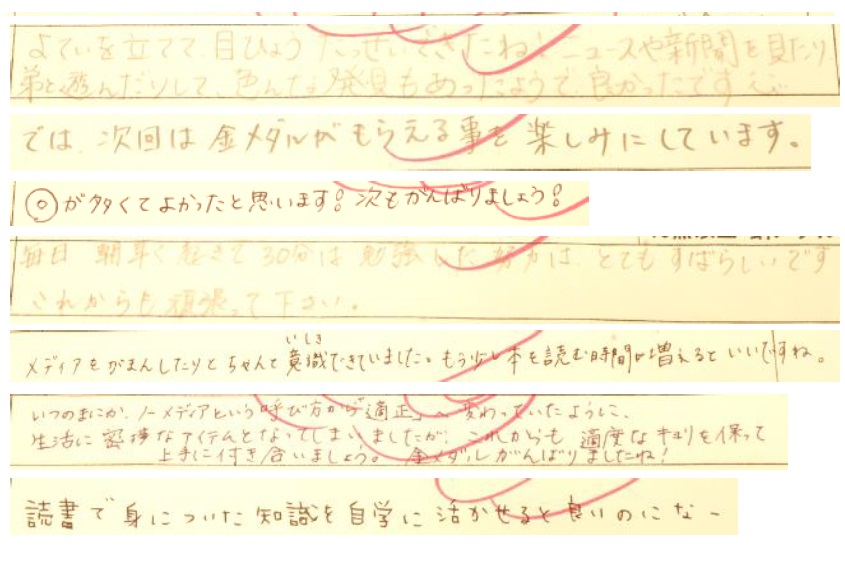 よていを立てて、目ひょうたっせいできたね！ニュースや新聞を見たり、
弟と遊んだりして、色んな発見もあったようで、良かったですね
では、次回は金メダルがもらえる事を楽しみにしています。
◎が多くてよかったと思います！次もがんばりましょう！
毎日 朝早く起きて30分は勉強した努力は、とてもすばらしいです
これからも頑張って下さい。
いしき
メディアをがまんしたりとちゃんと意識できていました。もう少し本を読む時間が増えるといいですね。
いつのまにか、ノーメディアという呼び方が「適正」へ変わっていたように、
生活に密接なアイテムとなってしまいましたが、これからも適度なキョリを保って
上手に付き合いましょう。金メダルがんばりましたね！
読書で身についた知識を自学に活かせると良いのになー